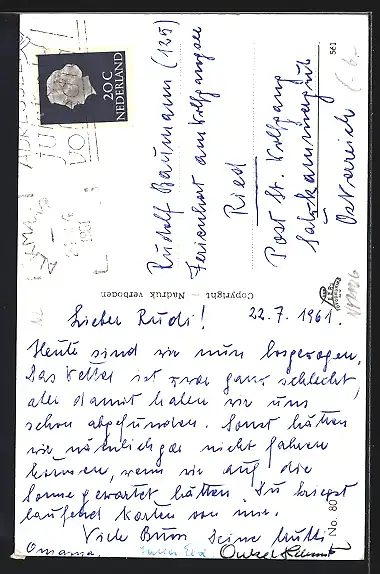 Lieber Rudi! 22.7.1961.
Heute sind wir nun losgezogen.
Das Wetter ist zwar ganz schlecht,
aber damit haben wir uns
schon abgefunden. Sonst hätten
wir nämlich gar nicht fahren
können, wenn wir auf die
Sonne gewartet hätten. Du kriegst
laufend Karten von mir.
Viele Deine Mutti
Omama. Onkel
Rudolf Baumann (125)
Ferienhort am Wolfgangsee
Ried
Post St. Wolfgang
Salzkammergut
Österreich
20C
NEDERLAND
ALKMAAR
1961
Copyright — Nadruk verboden
561
No. 80